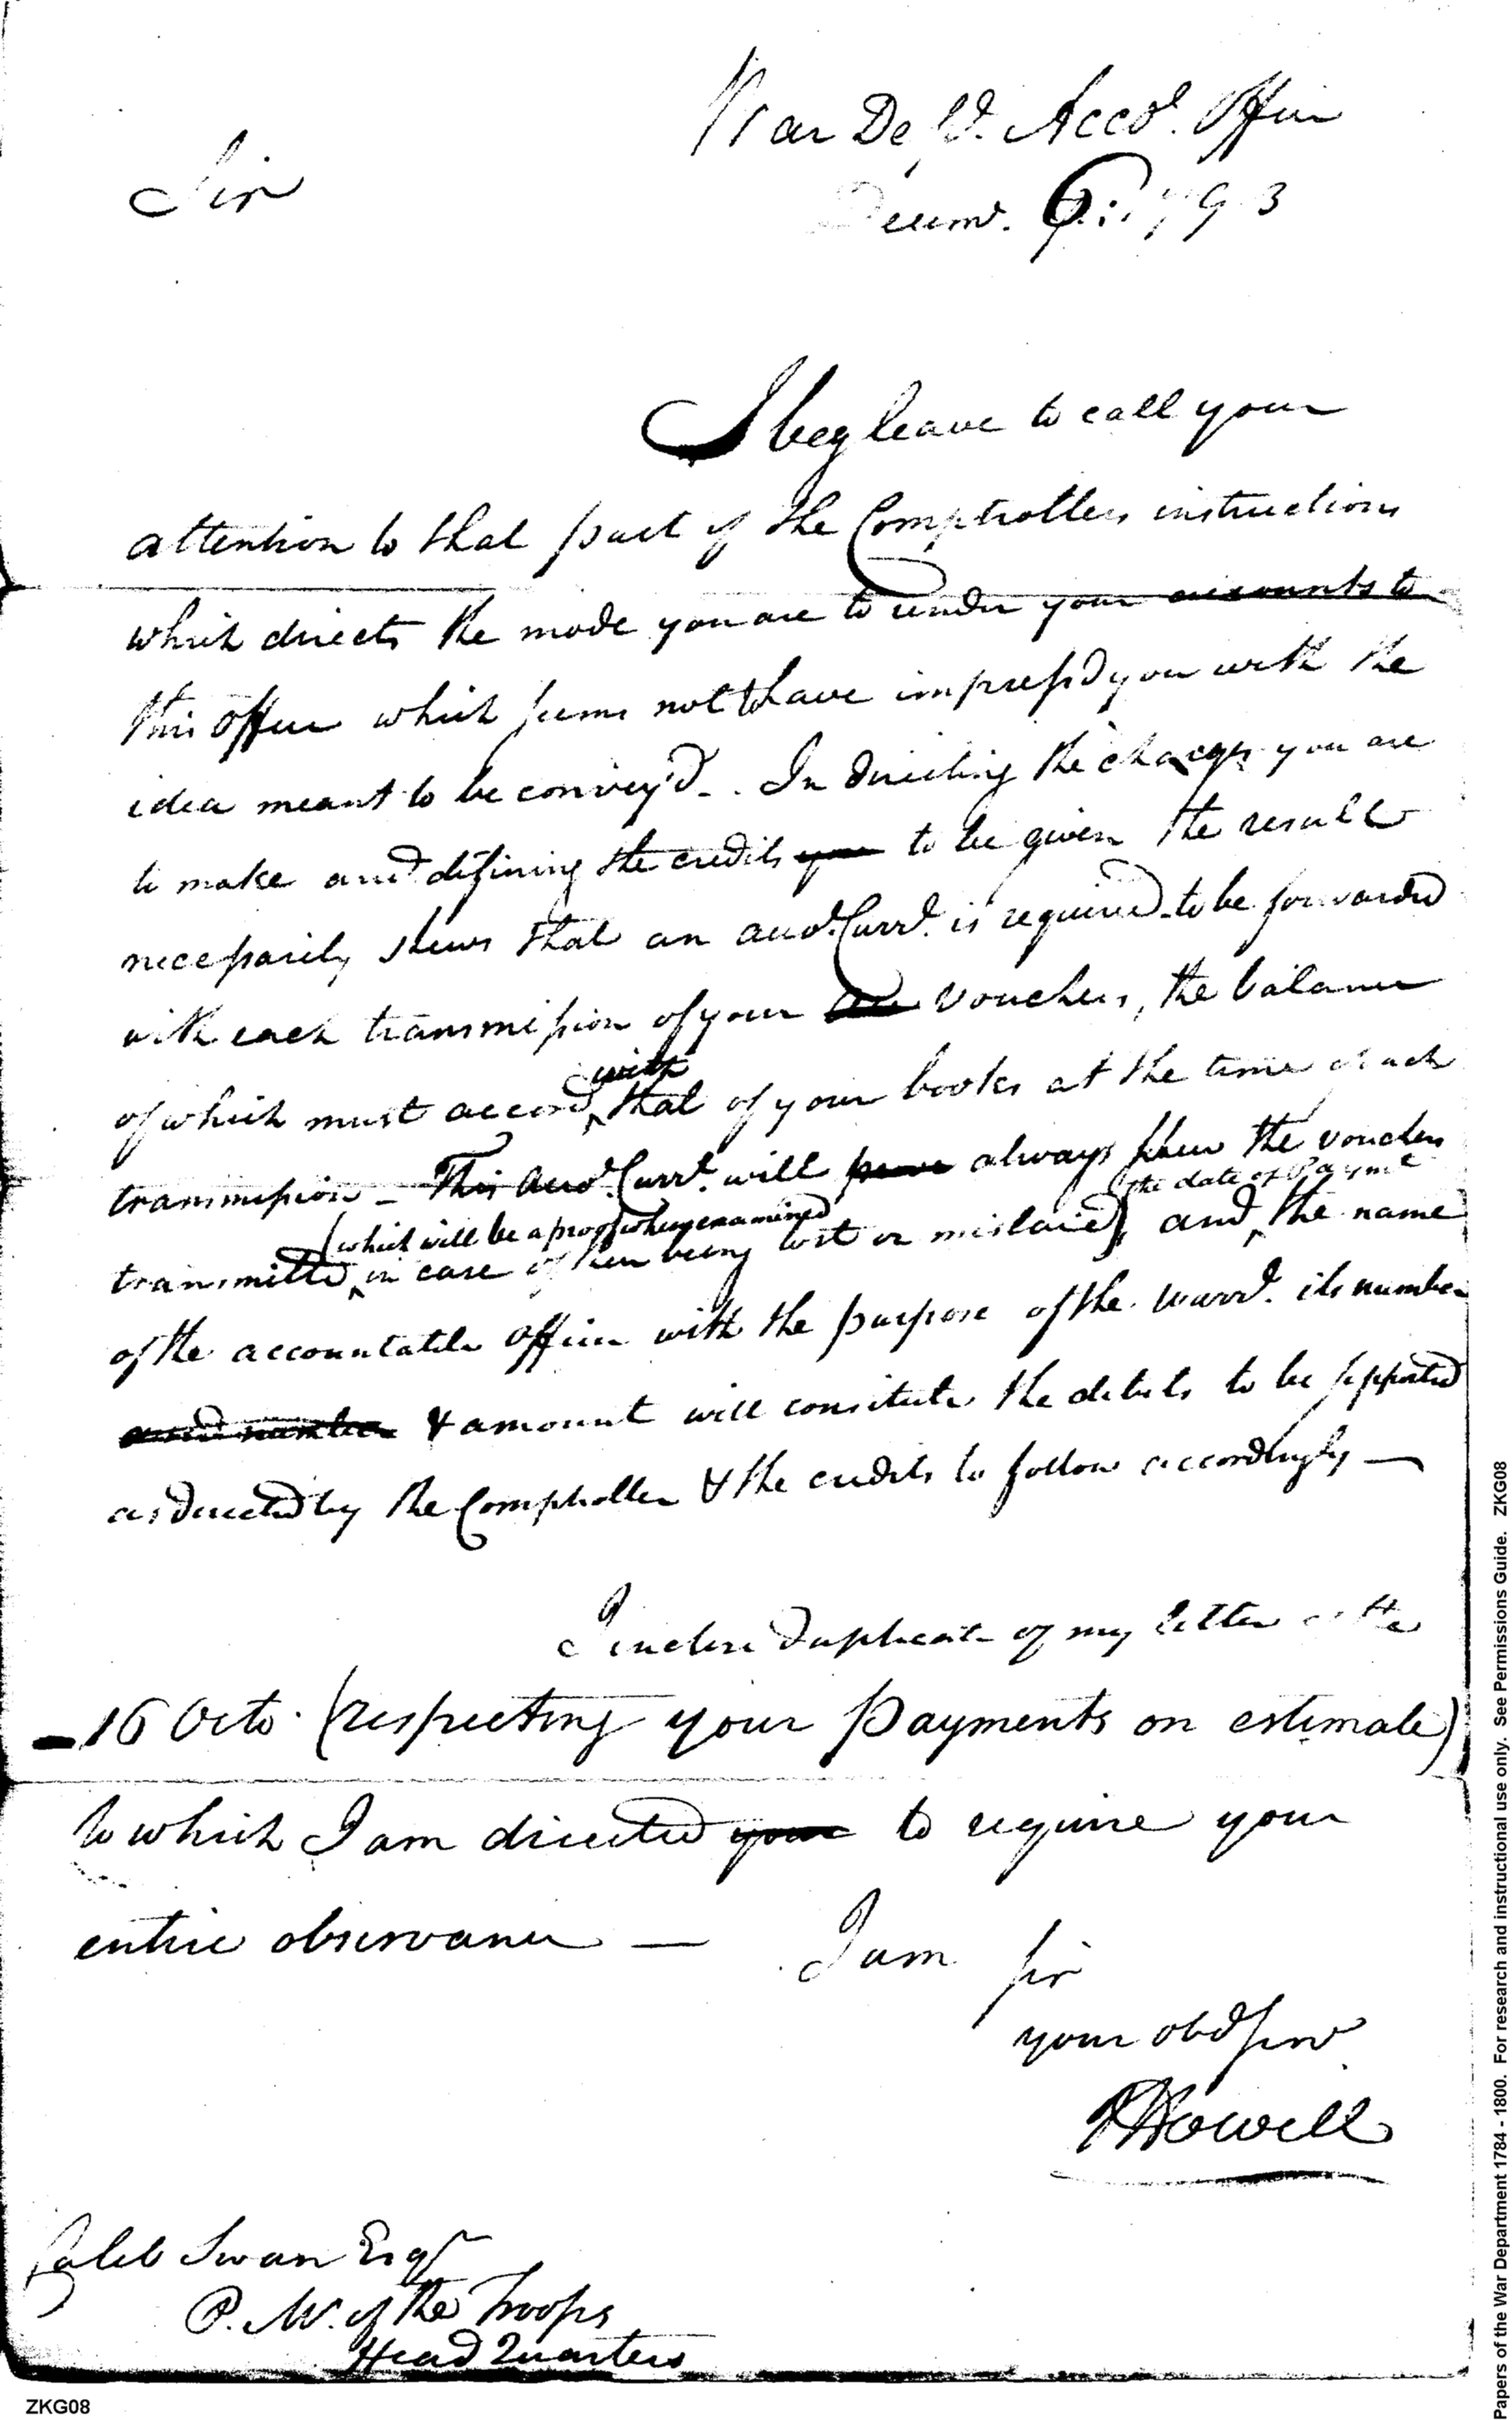 War Dept. Accot. Office
Sir
Decemr. 6. 1793
I beg leave to call your
attention to that part of the Comptrollers instructions
which directs the mode you are to render your accounts to
this office which seems not to have impress'd you with the
idea meant to be convey'd - . In directing the charges you are
to make and defining the credits you to be given the result
necessarily shews that an accot. Currt. is required to be forwarded
with each transmission of your vouchers, the balance
with
of which must accord that of your books at the time of each
transmission - This accot. Currt. will always shew the vouchers
the date of Paymt
(which will be a proof when examined
transmitted in case of their being lost or mislaid), and the name
of the accountable officer with the purpose of the warrt. its number
and number & amount will consitute the debets to be seperated
as directed by the Comptroller & the credits to follow accordingly —
I inclose duplicate of my letter of the
16 Octo. (respecting your Payments on estimate)
to which I am directed your to require your
entire observance — I am Sir
your obd Servt
J Howell
Caleb Swan Esqr
P. M. of the Troops
Head Quarters
ZKG08
Papers of the War Department 1784 - 1800. For research and instructional use only. See Permissions Guide. ZKG08